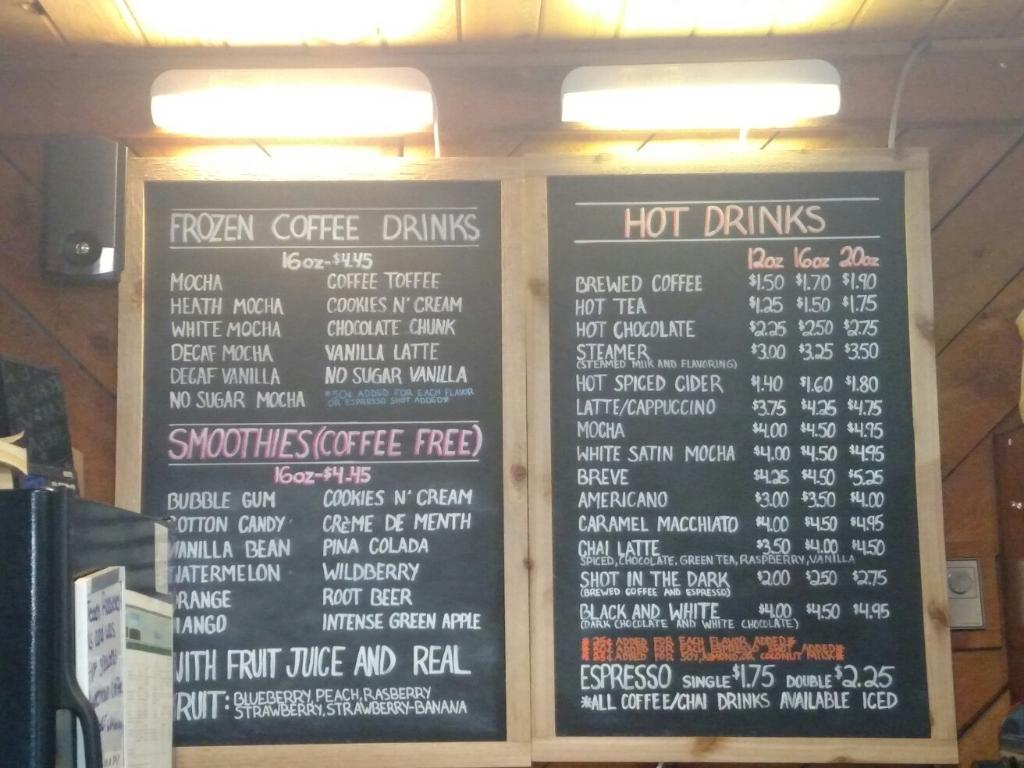 FROZEN COFFEE DRINKS
16oz-$4.45
MOCHA COFFEE TOFFEE
HEATH MOCHA COOKIES N' CREAM
WHITE MOCHA CHOCOLATE CHUNK
DECAF MOCHA VANILLA LATTE
DECAF VANILLA NO SUGAR VANILLA
NO SUGAR MOCHA *50¢ ADDED FOR EACH FLAVOR
OR ESPRESSO SHOT ADDED*
SMOOTHIES (COFFEE FREE)
16oz-$4.45
BUBBLE GUM COOKIES N' CREAM
COTTON CANDY CRÈME DE MENTH
VANILLA BEAN PINA COLADA
WATERMELON WILDBERRY
ORANGE ROOT BEER
MANGO INTENSE GREEN APPLE
WITH FRUIT JUICE AND REAL
FRUIT: BLUEBERRY, PEACH, RASBERRY
STRAWBERRY, STRAWBERRY-BANANA
HOT DRINKS
12oz 16oz 20oz
BREWED COFFEE $1.50 $1.70 $1.90
HOT TEA $1.25 $1.50 $1.75
HOT CHOCOLATE $2.25 $2.50 $2.75
STEAMER $3.00 $3.25 $3.50
(STEAMED MILK AND FLAVORING)
HOT SPICED CIDER $1.40 $1.60 $1.80
LATTE/CAPPUCCINO $3.75 $4.25 $4.75
MOCHA $4.00 $4.50 $4.95
WHITE SATIN MOCHA $4.00 $4.50 $4.95
BREVE $4.25 $4.50 $5.25
AMERICANO $3.00 $3.50 $4.00
CARAMEL MACCHIATO $4.00 $4.50 $4.95
CHAI LATTE $3.50 $4.00 $4.50
SPICED, CHOCOLATE, GREEN TEA, RASPBERRY, VANILLA
SHOT IN THE DARK $2.00 $2.50 $2.75
(BREWED COFFEE AND ESPRESSO)
BLACK AND WHITE $4.00 $4.50 $4.95
(DARK CHOCOLATE AND WHITE CHOCOLATE)
ADDED FOR EACH FLAVOR ADDED*
ADDED FOR EACH SHOT ADDED*
ADDED FOR SOY, ALMOND, OR COCONUT MILK*
ESPRESSO SINGLE $1.75 DOUBLE $2.25
*ALL COFFEE/CHAI DRINKS AVAILABLE ICED